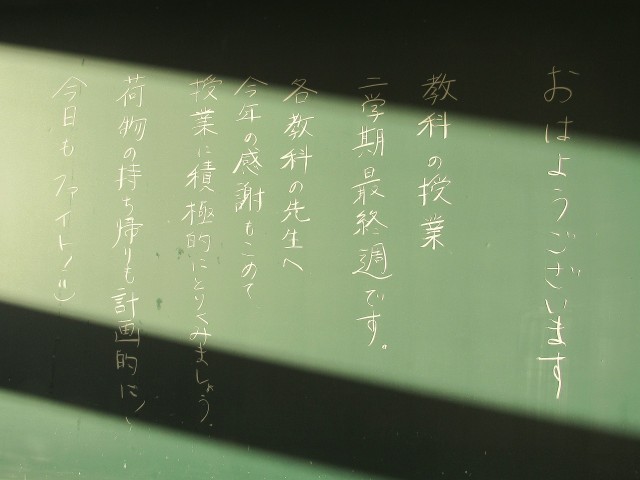 おはようございます
教科の授業
二学期最終週です。
各教科の先生へ
今年の感謝もこめて
授業に積極的にとりくみましょう。
荷物の持ち帰りも計画的に!
今日もファイト!!